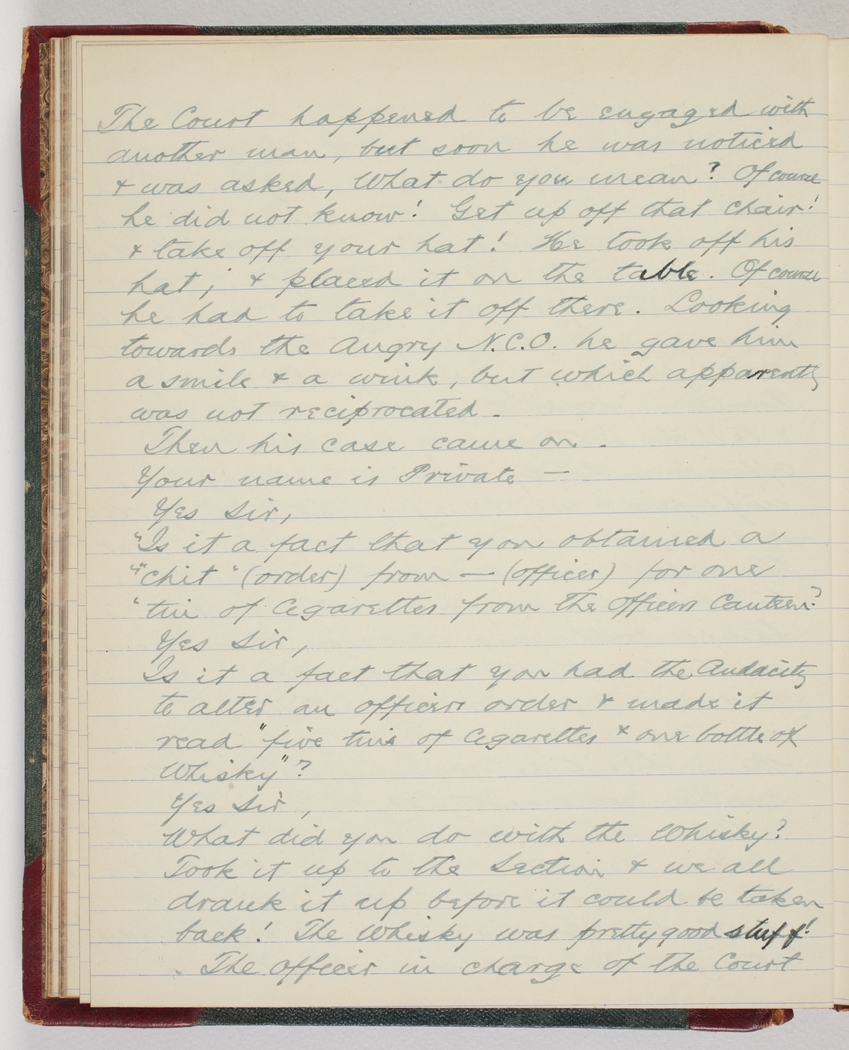 The Court happened to be engaged with
another man, but soon he was noticed
& was asked, What do you mean? Of course
he did not know! Get up off that chair!
& take off your hat! He took off his
hat, & placed it on the table. Of course
he had to take it off there. Looking
towards the Angry N.C.O. he gave him
a smile & a wink, but which apparently
was not reciprocated.
Then his case came on.
Your name is Private —
Yes Sir,
"Is it a fact that you obtained a
"“chit” (order) from — (officer) for one
"tin of Cigarettes from the Officers Canteen?
Yes Sir,
Is it a fact that you had the Audacity
to alter an officers order & made it
read "five tins of Cigarettes & one bottle of
Whisky"?
Yes Sir,
What did you do with the Whisky?
Took it up to the Section & we all
drank it up before it could be taken
back! The Whisky was pretty good stuff!
The officer in charge of the Court